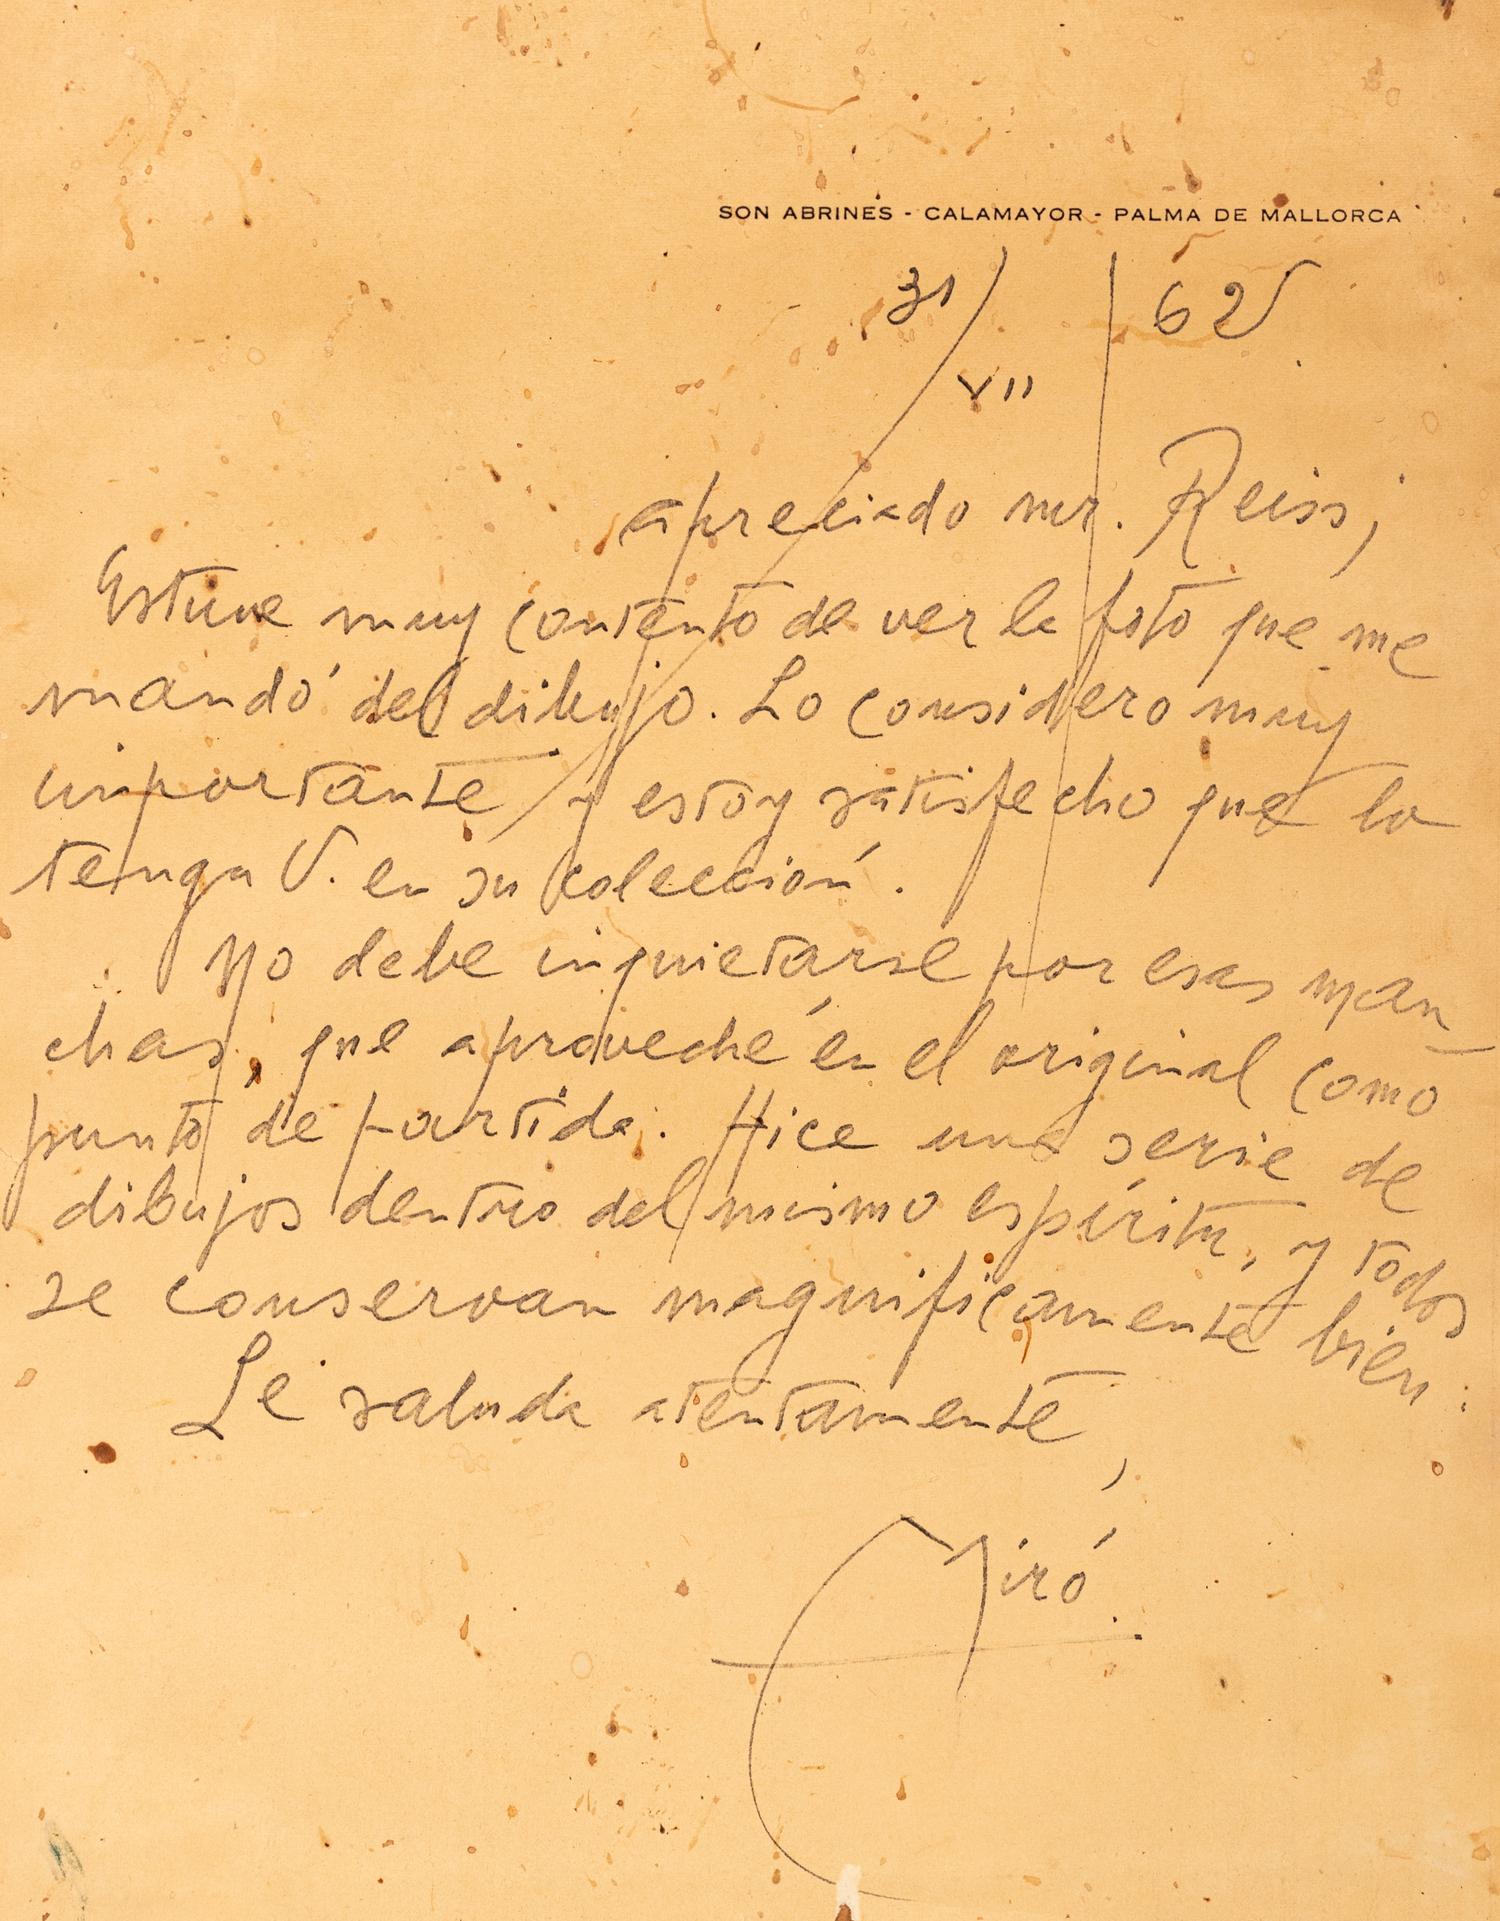 SON ABRINES - CALAMAYOR - PALMA DE MALLORCA
31/VII/62
apreciado mr. Reiss,
Estuve muy contento de ver la foto que me
mandó del dibujo. Lo considero muy
importante y estoy satisfecho que lo
tenga V. en su colección.
No debe inquietarse por esas man-
chas, que aproveché en el original como
punto de partida. Hice una serie de
dibujos dentro del mismo espíritu, y todos
se conservan magníficamente bien.
Le saluda atentamente,
Miró.